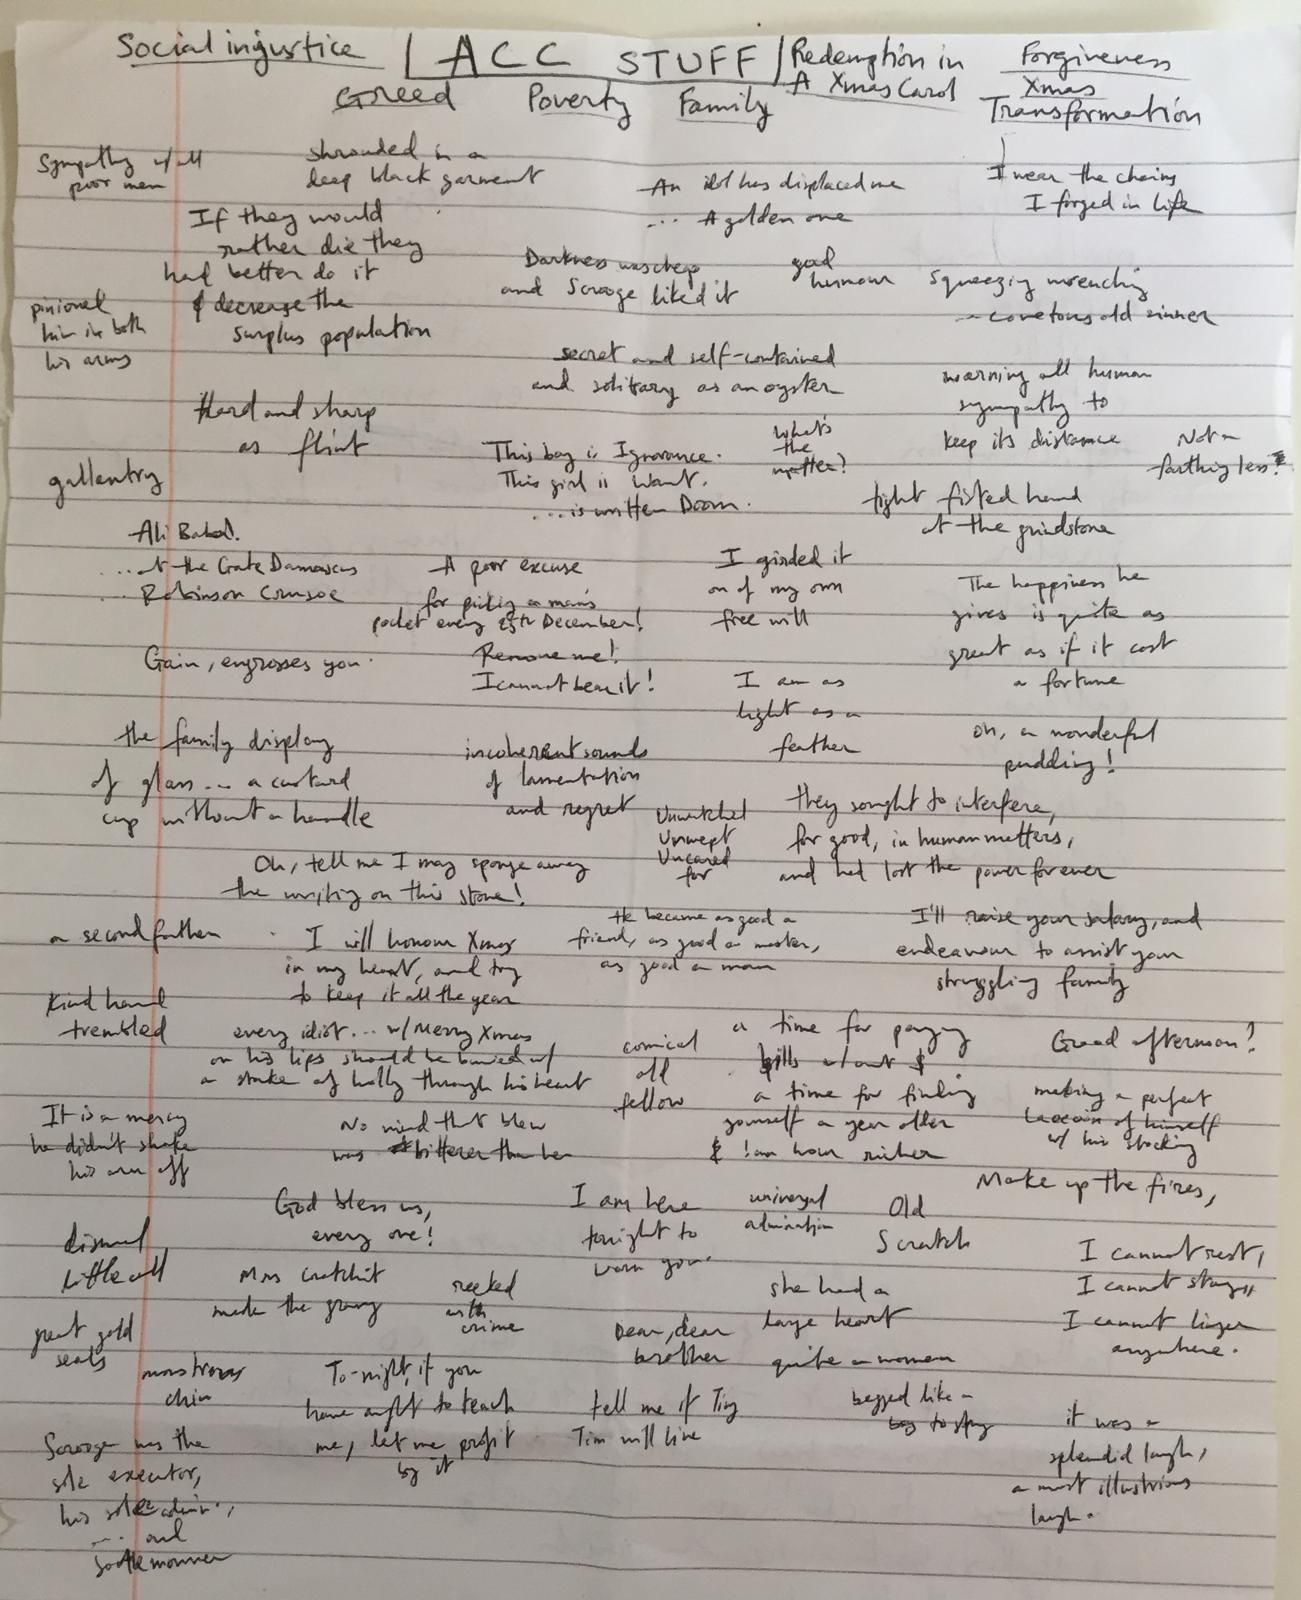 Social injustice
ACC STUFF
Redemption in
A Xmas Carol
Forgiveness
Xmas
Transformation
Greed Poverty Family
Sympathy w/ all
poor men
shrouded in a
deep black garment
An idol has displaced me
... A golden one
I wear the chains
I forged in life
If they would
rather die they
had better do it
& decrease the
surplus population
Darkness was cheap
and Scrooge liked it
good
humour
squeezing wrenching
... covetous old sinner
pinioned
him in both
his arms
secret and self-contained
and solitary as an oyster
warning all human
sympathy to
keep its distance
Hard and sharp
as flint
This boy is Ignorance.
This girl is Want.
... is written Doom.
what's
the
matter?
Not a
farthing less
gallantry
tight fisted hand
at the grindstone
Ali Baba!
... at the Gate Damascus
... Robinson Crusoe
A poor excuse
for picking a man's
pocket every 25th December!
I girded it
on of my own
free will
The happiness he
gives is quite as
great as if it cost
a fortune
Gain, engrosses you.
Remove me!
I cannot bear it!
I am as
light as a
feather
oh, a wonderful
pudding!
the family display
of glass ... a custard
cup without a handle
incoherent sounds
of lamentation
and regret
Unwatched
Unwept
Uncared
for
they sought to interfere,
for good, in human matters,
and had lost the power forever
Oh, tell me I may sponge away
the writing on this stone!
a second father
I will honour Xmas
in my heart, and try
to keep it all the year
He became as good a
friend, as good a master,
as good a man
I'll raise your salary, and
endeavour to assist your
struggling family
Kind hand
trembled
every idiot... w/ Merry Xmas
on his lips should be buried w/
a stake of holly through his heart
comical
old
fellow
a time for paying
bills w/out $
a time for finding
yourself a year older
& !an hour richer
Good afternoon!
making a perfect
Laocoön of himself
w/ his stocking
It is a mercy
he didn't shake
his arm off
No wind that blew
was bitterer than he
Make up the fires,
God bless us,
every one!
I am here
tonight to
warn you.
universal
admiration
Old
Scratch
dismal
little cell
I cannot rest,
I cannot stay,
I cannot linger
anywhere.
Mrs Cratchit
made the gravy
reeked
with
crime
she had a
large heart
Dear, dear
brother
quite a woman
great gold
seals
monstrous
chin
To-night, if you
have aught to teach
me, let me profit
by it
tell me if Tiny
Tim will live
begged like a
boy to stay
it was a
splendid laugh,
a most illustrious
laugh.
Scrooge was the
sole executor,
his sole admin.,
... and
sole mourner